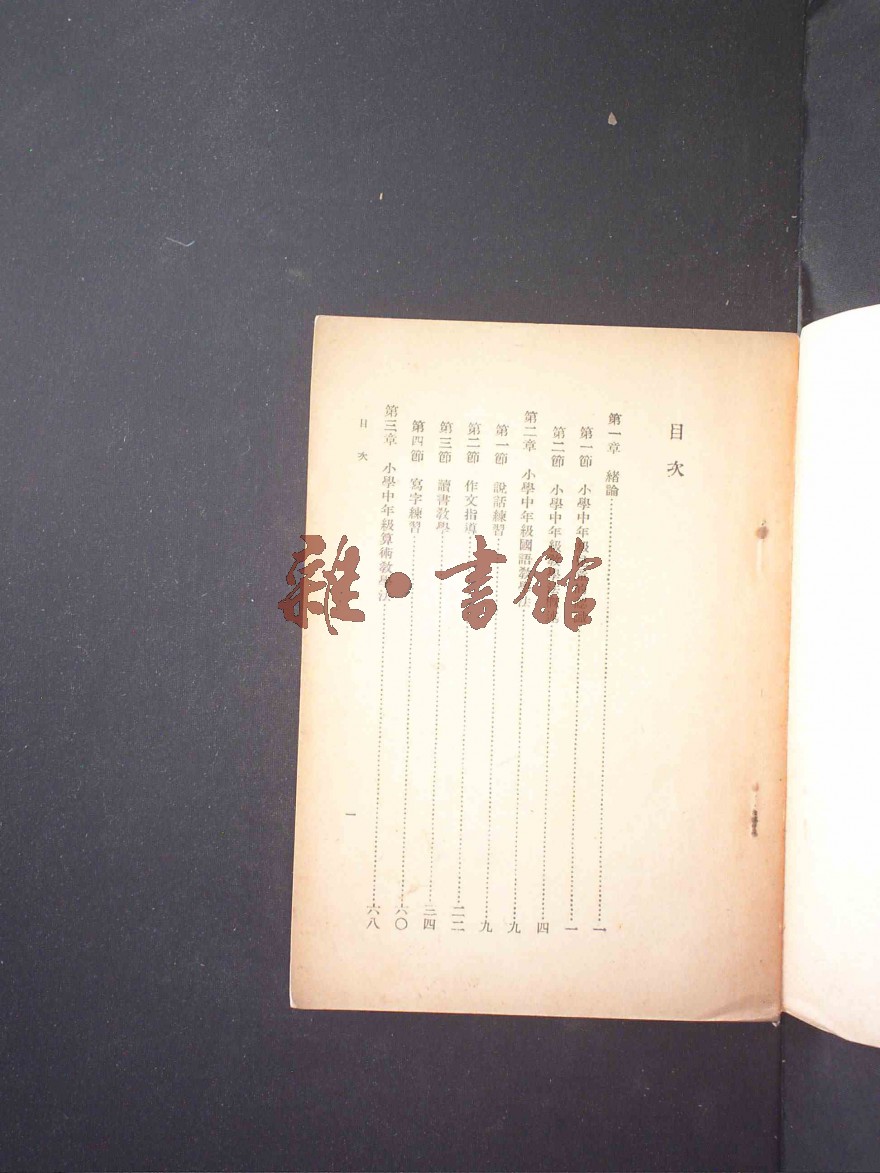 目次
第一章 緒論……一
第一節 小學中年級……一
第二節 小學中年級……四
第二章 小學中年級國語教學法……九
第一節 說話練習……九
第二節 作文指導……二二
第三節 讀書教學……三四
第四節 寫字練習……六〇
第三章 小學中年級算術教學法……六八
目次
一
雜·書館